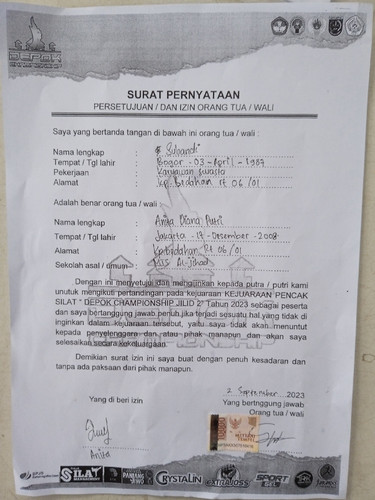 DEPOK
CHAMPIONSHIP
SURAT PERNYATAAN
PERSETUJUAN / DAN IZIN ORANG TUA / WALI
Saya yang bertanda tangan di bawah ini orang tua / wali :
Nama lengkap : Subandi
Tempat / Tgl lahir : Bogor - 03 - April - 1987
Pekerjaan : Karyawan Swasta
Alamat : kp. Bedahan rt 06/01
Adalah benar orang tua / wali :
Nama lengkap : Anita Diana Putri
Tempat / Tgl lahir : Jakarta - 17 - Desember - 2008
Alamat : Kp. Bedahan Rt 06/01
Sekolah asal / umum : Al-Jihad
Dengan ini menyetujui dan mengijinkan kepada putra / putri kami
unutuk mengikuti pertandingan pada kejuaraan KEJUARAAN PENCAK
SILAT " DEPOK CHAMPIONSHIP JILID 2" Tahun 2023 sebagai peserta
dan saya bertanggung jawab penuh jika terjadi sesuatu hal yang tidak di
inginkan dalam kejuaraan tersebut, yaitu saya tidak akan menuntut
kepada penyelenggara dan atau pihak manapun dan akan saya
selesaikan secara kekeluargaan.
Demikian surat izin ini saya buat dengan penuh kesadaran dan
tanpa ada paksaan dari pihak manapun.
2 September 2023
Yang di beri izin
Yang bertnggung jawab
Orang tua / wali
10000
METERAI
TEMPEL
Anita
SILAT
CRYSTALIN
EXTRAJOSS
SPORT